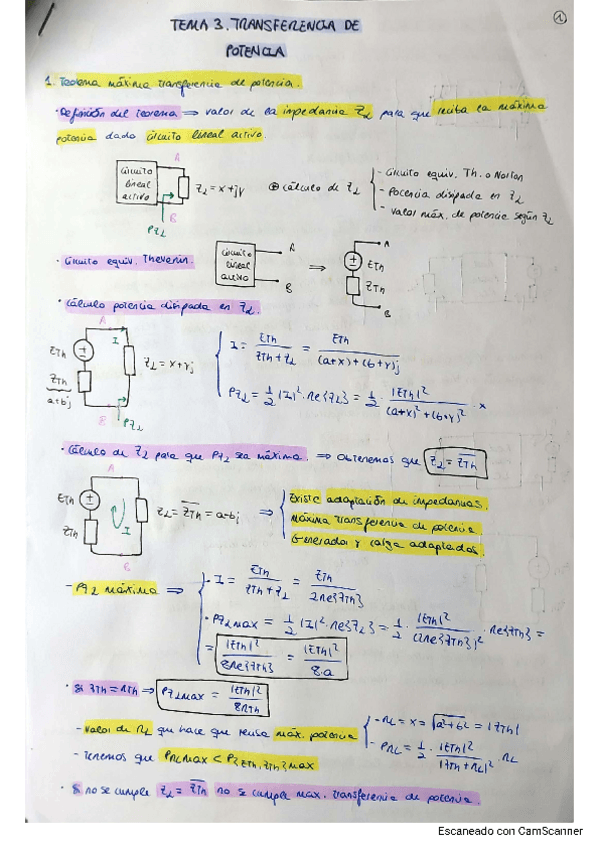 1
TEMA 3. TRANSFERENCIA DE
POTENCIA
1. Teorema máxima transferencia de potencia.
· Definición del teorema ⇒ valor de la impedancia Z_L para que reciba la máxima
potencia dado circuito lineal activo.
Circuito
lineal
activo
A
B
Z_L = x+jy
P_{Z_L}
⊕ cálculo de Z_L
- Circuito equiv. Th. o Norton
- Potencia disipada en Z_L
- Valor máx. de potencia según Z_L
· Circuito equiv. Thevenin.
Circuito
lineal
activo
A
B
⇒
A
E_Th
Z_Th
B
· Cálculo potencia disipada en Z_L.
A
I
E_Th
Z_Th
a+bj
Z_L = x+yj
B
P_{Z_L}
I = E_Th / (Z_Th+Z_L) = E_Th / ((a+x)+(b+y)j)
P_{Z_L} = 1/2 |I|² · Re{Z_L} = 1/2 · |E_Th|² / ((a+x)²+(b+y)²) · x
· Cálculo de Z_L para que P_{Z_L} sea máxima. ⇒ Obtenemos que Z_L = \overline{Z_Th}
A
E_Th
Z_Th
I
B
Z_L = \overline{Z_Th} = a-bj ⇒
Existe adaptación de impedancias.
Máxima transferencia de potencia
Generador y carga adaptados.
- P_{Z_L} máxima ⇒
· I = E_Th / (Z_Th+Z_L) = E_Th / 2Re{Z_Th}
· P_{Z_L max} = 1/2 |I|² · Re{Z_L} = 1/2 · |E_Th|² / (2Re{Z_Th})² · Re{Z_Th} =
= |E_Th|² / 8Re{Z_Th} = |E_Th|² / 8·a
· Si Z_Th = R_Th ⇒ P_{Z_L MAX} = |E_Th|² / 8R_Th
- Valor de R_L que hace que reciba máx. potencia
- R_L = x = √(a²+b²) = |Z_Th|
- P_{RL} = 1/2 · |E_Th|² / |Z_Th+R_L|² · R_L
- Tenemos que P_{RL MAX} < P_{Z_Th, Z_Th} MAX
· Si no se cumple Z_L = \overline{Z_Th} no se cumple max. transferencia de potencia.
Escaneado con CamScanner